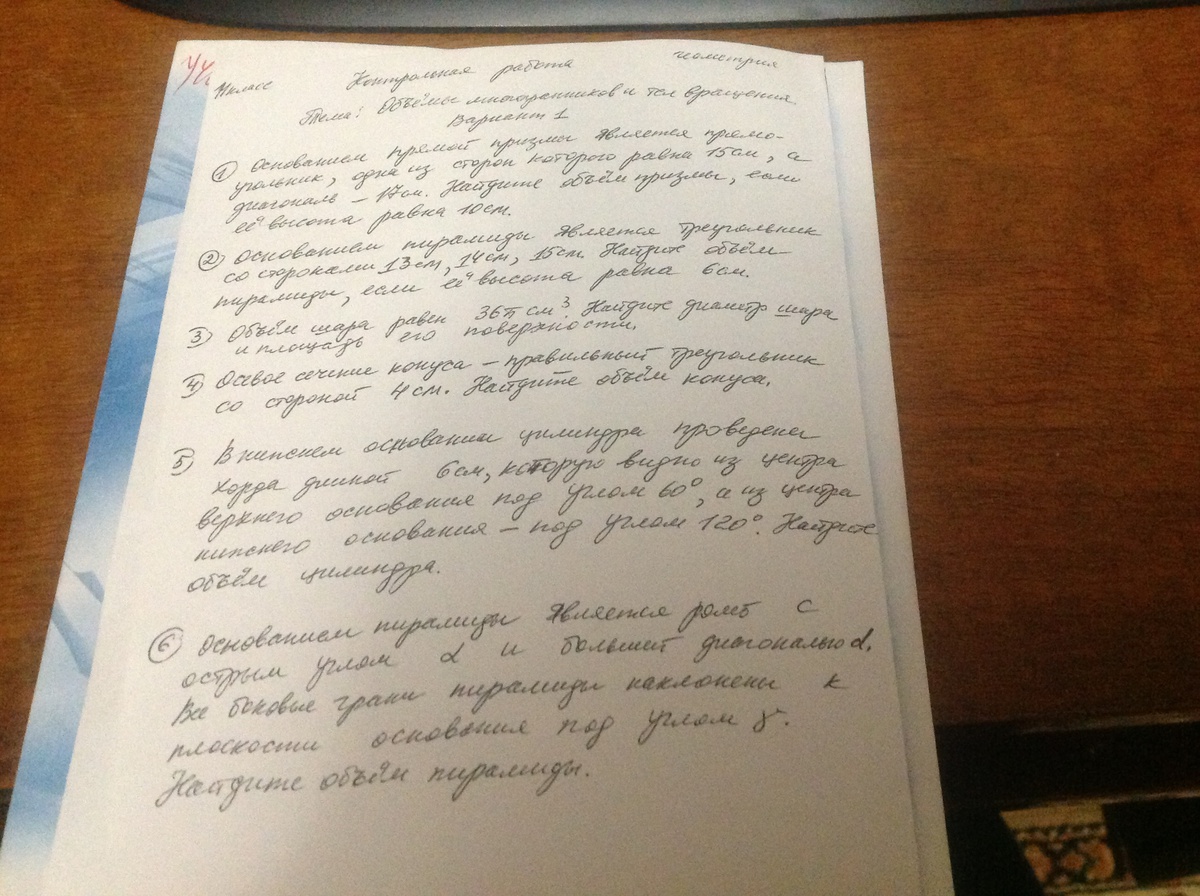 11 класс Контрольная работа геометрия
Тема: Объёмы многогранников и тел вращения.
Вариант 1
① Основанием прямой призмы является прямо-
угольник, одна из сторон которого равна 15см, а
диагональ – 17см. Найдите объём призмы, если
её высота равна 10см.
② Основанием пирамиды является треугольник
со сторонами 13см, 14см, 15см. Найдите объём
пирамиды, если её высота равна 6см.
3) Объём шара равен 36π см³. Найдите диаметр шара
и площадь его поверхности.
4) Осевое сечение конуса – правильный треугольник
со стороной 4см. Найдите объём конуса.
5) В нижнем основании цилиндра проведена
хорда длиной 6см, которую видно из центра
верхнего основания под углом 60°, а из центра
нижнего основания – под углом 120°. Найдите
объём цилиндра.
⑥ Основанием пирамиды является ромб с
острым углом α и большей диагональю d.
Все боковые грани пирамиды наклонены к
плоскости основания под углом γ.
Найдите объём пирамиды.